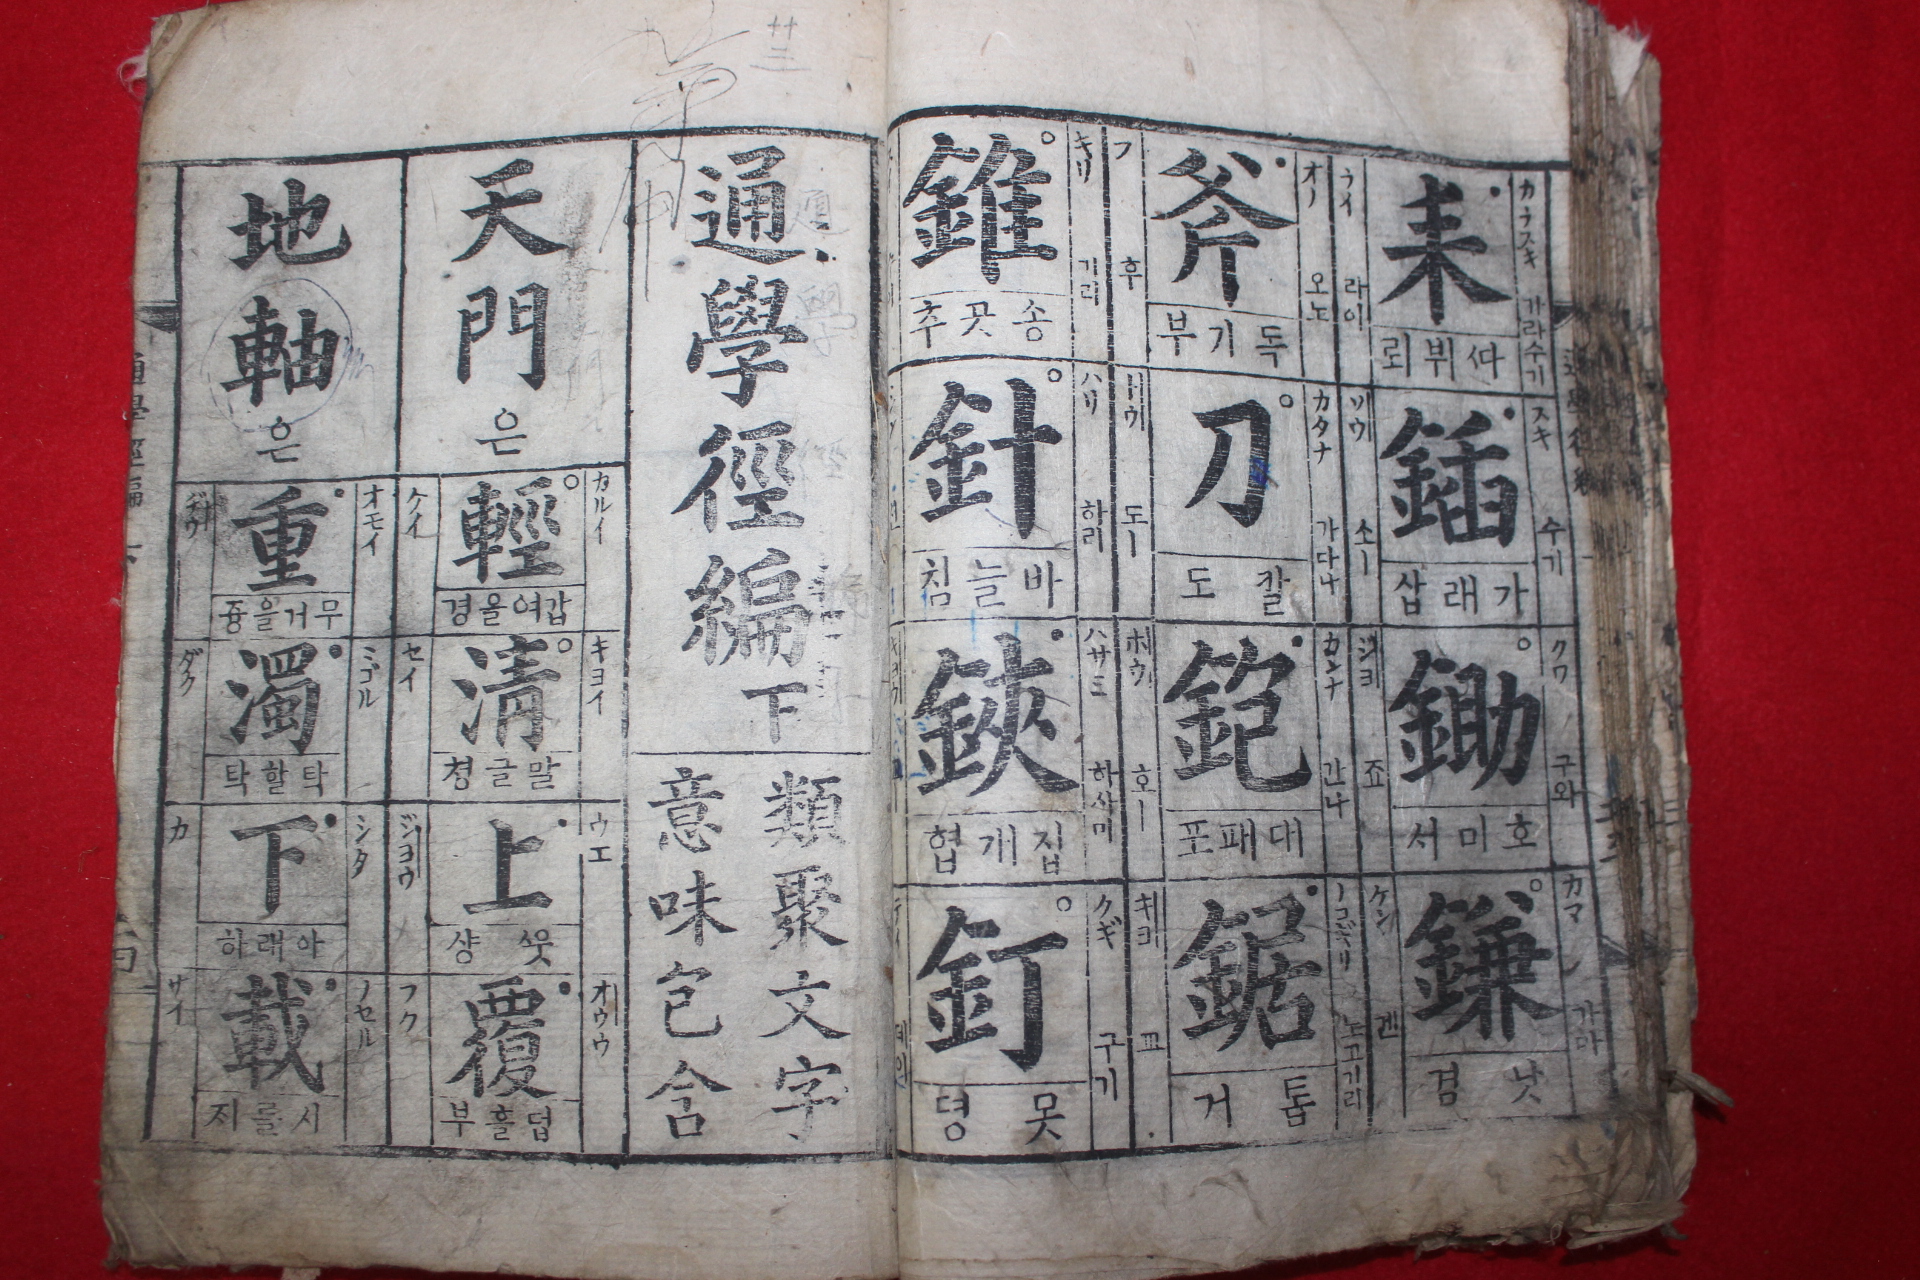 耒
カラスキ 가라수기
ライ 라이
따뷔뢰
鍤
スキ 수기
ソウ 소ー
가래삽
鋤
クワ 구와
ジヨ 죠
호미서
鎌
カマ 가마
ケン 겐
낫 겸
斧
オノ 오노
フ 후
독기부
刀
カタナ 가다나
トウ 도ー
칼 도
鉋
カンナ 간나
ホウ 호ー
대패포
鋸
ノコギリ 노고기리
キヨ 교
톱 거
錐
キリ 기리
송곳추
針
ハリ 하리
바늘침
鋏
ハサミ 하사미
집개협
釘
クギ 구기
못 뎡
通學徑編下
類聚文字
意味包含
天門은
輕
カルイ
ケイ
갑여올경
淸
キヨイ
セイ
말글청
上
ウエ
ジヨウ
웃 샹
覆
オウウ
フク
덥흘부
地軸은
重
オモイ
무거을즁
濁
ミゴル
ダク
탁할탁
下
シタ
カ
아래하
載
ノセル
サイ
시를지